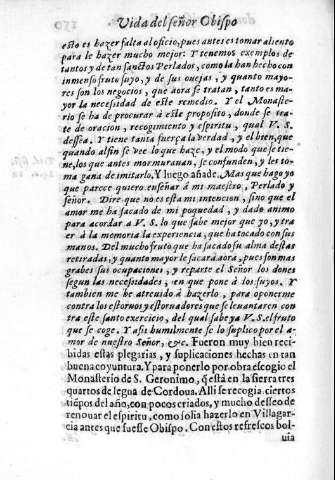 Vida del señor Obispo
esto es hazer falta al oficio, pues antes es tomar aliento
para le hazer mucho mejor. Y tenemos exemplos de
tantos y de tan sanctos Perlados, como la han hecho con
inmenso fruto suyo, y de sus ouejas, y quanto mayo-
res son los negocios, que aora se tratan, tanto es ma-
yor la necesidad de este remedio. Y el Monaste-
rio se ha de procurar à este proposito, donde se tra-
te de oracion, recogimiento y espiritu, qual V. S.
dessea. Y tiene tanta fuerça la verdad, y el bien, que
quando alfin se vee lo que haze, y el modo que se tie-
ne, los que antes mormurauan, se confunden, y les to-
ma gana de imitarlo. Y luego añade. Mas que hago yo
que parece quiero enseñar à mi maestro, Perlado y
señor. Dire que no es esta mi intencion, sino que el
amor me ha sacado de mi poquedad, y dado animo
para acordar a V. S. lo que sabe mejor que yo, y tra
er à la memoria la experiencia, que ha tocado con sus
manos. Del mucho fruto que ha sacado su alma destas
retiradas, y quanto mayor le sacara aora, pues son mas
grabes sus ocupaciones, y reparte el Señor los dones
segun las necesidades, en que pone à los suyos. Y
tambien me he atreuido à hazerlo, para oponerme
contra los estoruos y estoruadores que se leuantaren con
tra este santo exercicio, del qual sabe ya V. S. el fruto
que se coge. Y assi humilmente se lo suplico por el a-
mor de nuestro Señor, &c. Fueron muy bien reci-
bidas estas plegarias, y suplicaciones hechas en tan
buena coyuntura. Y para ponerlo por obra escogio el
Monasterio de S. Geronimo, q̃ està en la sierra tres
quartos de legua de Cordoua. Alli se recogia ciertos
tiẽpos del año, con pocos criados, y mucho desseo de
renouar el espiritu, como solia hazerlo en Villagar-
cia antes que fuesse Obispo. Con estos refrescos bol-
uia